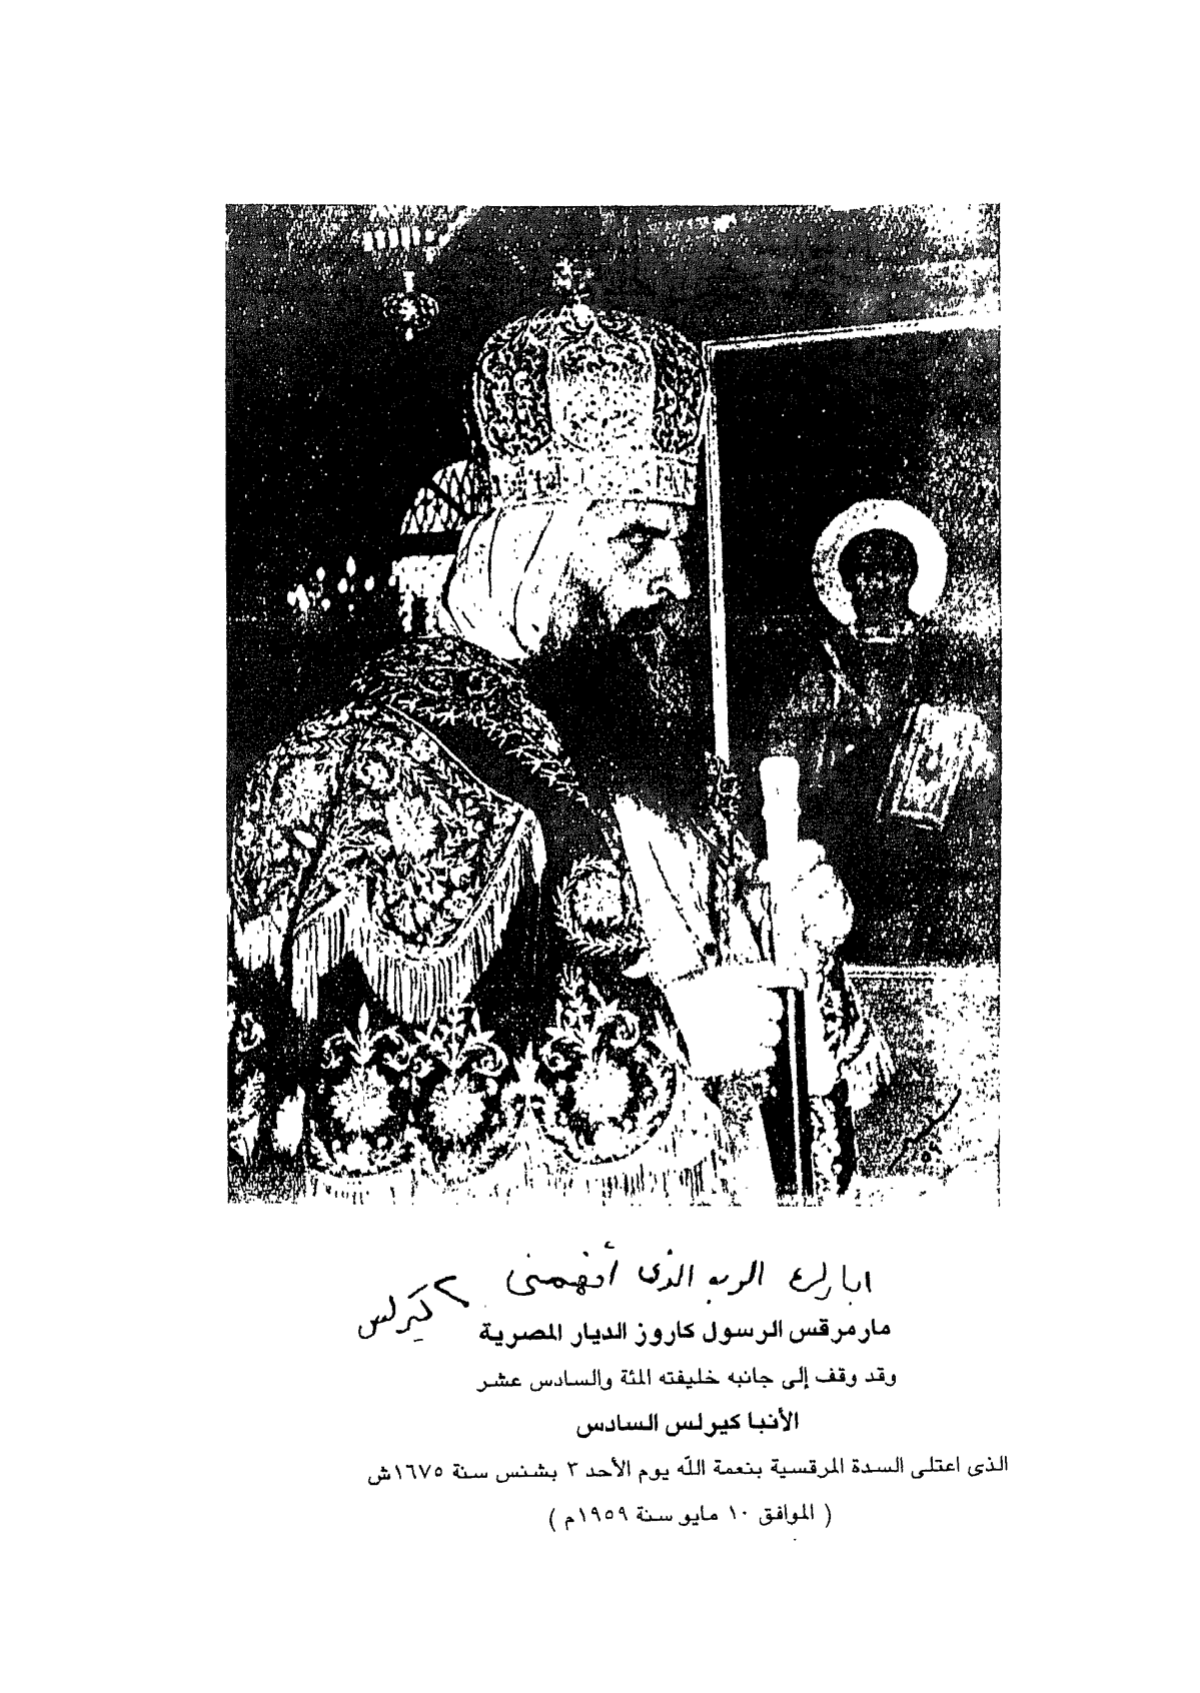 أبارك الرب الذى أفهمنى
كيرلس
مارمرقس الرسول كاروز الديار المصرية
وقد وقف إلى جانبه خليفته المئة والسادس عشر
الأنبا كيرلس السادس
الذى اعتلى السدة المرقسية بنعمة الله يوم الأحد ٣ بشنس سنة ١٦٧٥ش
( الموافق ١٠ مايو سنة ١٩٥٩م )